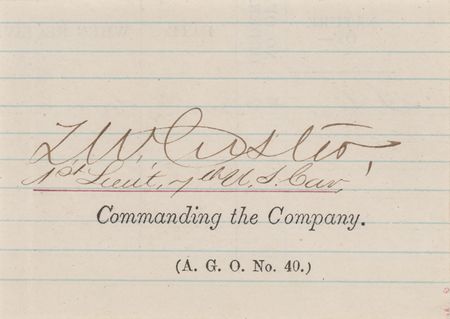 T. W. Custer,
1st Lieut, 7th U. S. Cav.
Commanding the Company.
(A. G. O. No. 40.)